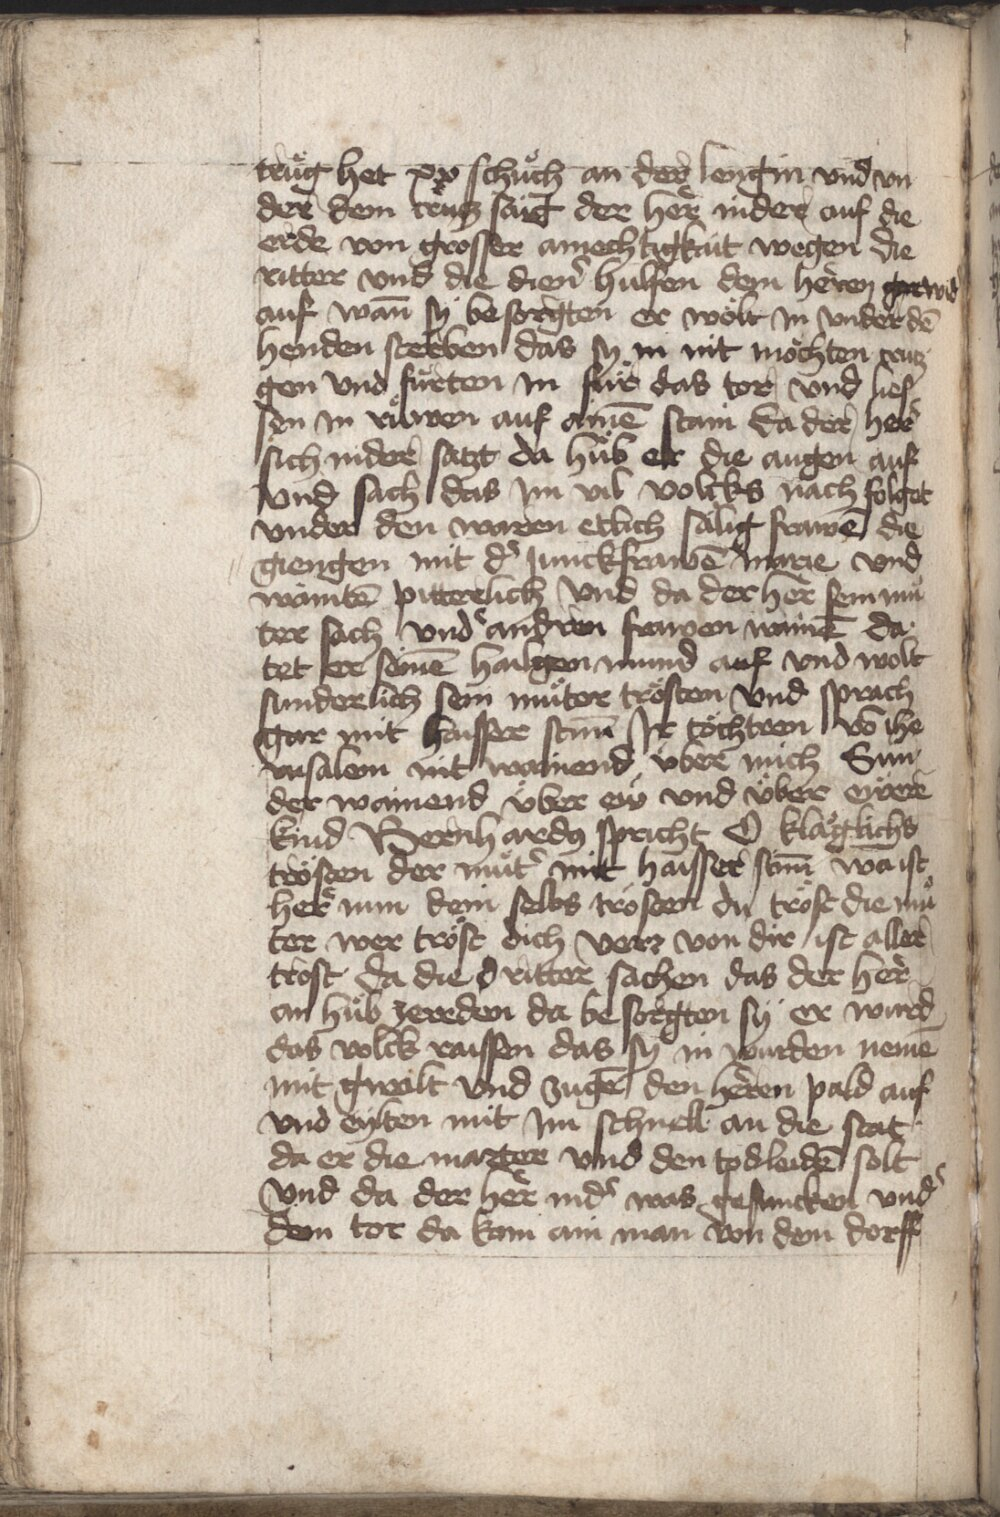 trůg het xv schůch an der lengin vnd vn
der dem crütz saig der her̃ nider auf die
erde von grosser amechtigkait wegen die
ritter vnd die dienˀ hulfen dem heren wid
auf wañ sy besorgten er wölt in vnder dē
henden sterben das sy in nit möchten crutz
gen vnd fůrten in für das tor vnd lies
sen in růwen auf ainē stain da der her̃
sich nider satzt da hůb er die augen auf
vnd sach das im vil volcks nach folget
vnder den waren etlich sälig frawē die
giengen mit dˀ Junckfrawē marie vnd
waintē pitterlich vnd da der her̃ sein mů
ter sach vndˀ andren frawen wainē da
tet er seinē hailgen mund auf vnd wolt
sunderlich sein můter trösten vnd sprach
gar mit haisser stim̄ Ir töchteren vō ihe
rusalem nit wainend über mich Sun
der wainend über ew und über eẅere
kind Bernhardus spricht O kläglichs
trösten der můtˀ mit haisser stim̄ wa ist
her̃ nun dein selbs trösten du tröst die mů
ter wer tröst dich von dir ist aller
trost da die ritter sachen das der her̃
an hůb ze reden da besorgten sy er wurd
das volck raissen das sy in wurden nemē
mit gwalt vnd zugē den heren pald auf
vnd eylten mit im schnell an die stat
da er die marter vnd den tod leidē solt
Vnd da der her̃ nidˀ was gesuncken vndˀ
dem tor da kam ain man von dem dorff